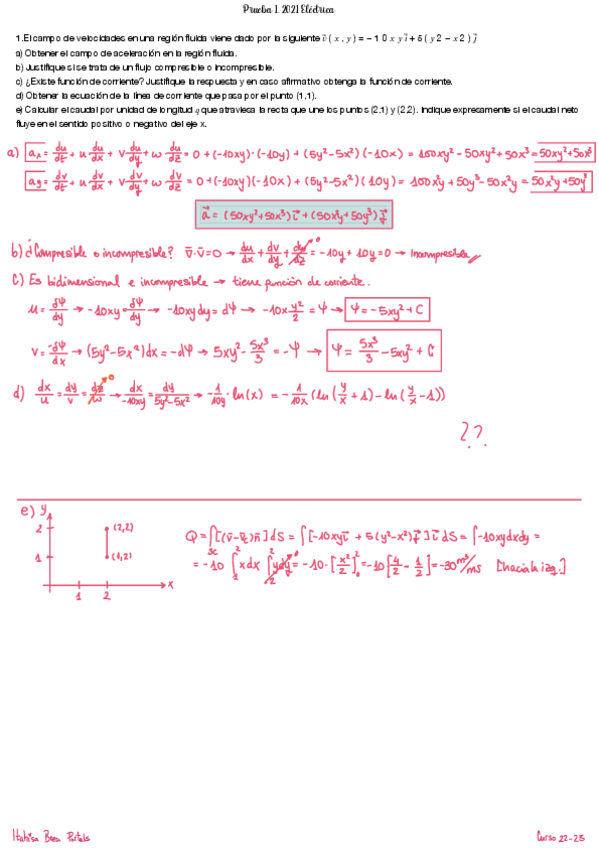 Prueba 1. 2021 Eléctrica
1.El campo de velocidades en una región fluida viene dado por la siguiente v⃗ ( x , y ) = − 1 0 x y i⃗ + 5 ( y 2 − x 2 ) j⃗
a) Obtener el campo de aceleración en la región fluida.
b) Justifique si se trata de un flujo compresible o incompresible.
c) ¿Existe función de corriente? Justifique la respuesta y en caso afirmativo obtenga la función de corriente.
d) Obtener la ecuación de la línea de corriente que pasa por el punto (1,1).
e) Calcular el caudal por unidad de longitud q que atraviesa la recta que une los puntos (2,1) y (2,2). Indique expresamente si el caudal neto
fluye en el sentido positivo o negativo del eje x.
a) ax = du/dt + u du/dx + v du/dy + w du/dz = 0 + (-10xy)·(-10y) + (5y²-5x²)(-10x) = 100xy² - 50xy² + 50x³ = 50xy²+50x³
ay = dv/dt + u dv/dx + v dv/dy + w dv/dz = 0+(-10xy)(-10x) + (5y²-5x²)(10y) = 100x²y + 50y³ - 50x²y = 50x²y+50y³
a⃗ = (50xy²+50x³)i⃗ + (50x²y+50y³)j⃗
b) ¿Compresible o incompresible? ∇·v̄=0 → du/dx + dv/dy + dw/dz = -10y + 10y = 0 → Incompresible
c) Es bidimensional e incompresible → tiene función de corriente.
u = dψ/dy → -10xy = dψ/dy → -10xydy = dψ → -10x y²/2 = ψ → ψ = -5xy² + C
v = -dψ/dx → (5y²-5x²)dx = -dψ → 5xy² - 5x³/3 = -ψ → ψ = 5x³/3 - 5xy² + C
d) dx/u = dy/v = dz/w → dx/-10xy = dy/5y²-5x² → -1/10y · ln(x) = -1/10x (ln(y/x + 1) - ln(y/x - 1))
??
e) y
2 (2,2)
1 (1,2)
1 2 x
Q = ∫[(v̄-v̄c)n̄]dS = ∫[-10xyi⃗ + 5(y²-x²)j⃗]i⃗ dS = ∫-10xydxdy =
= -10 ∫xdx ∫ydy = -10·[x²/2] = -10[4/2 - 1/2] = -30 m³/ms [hacia la izq.]
Curso 22-23